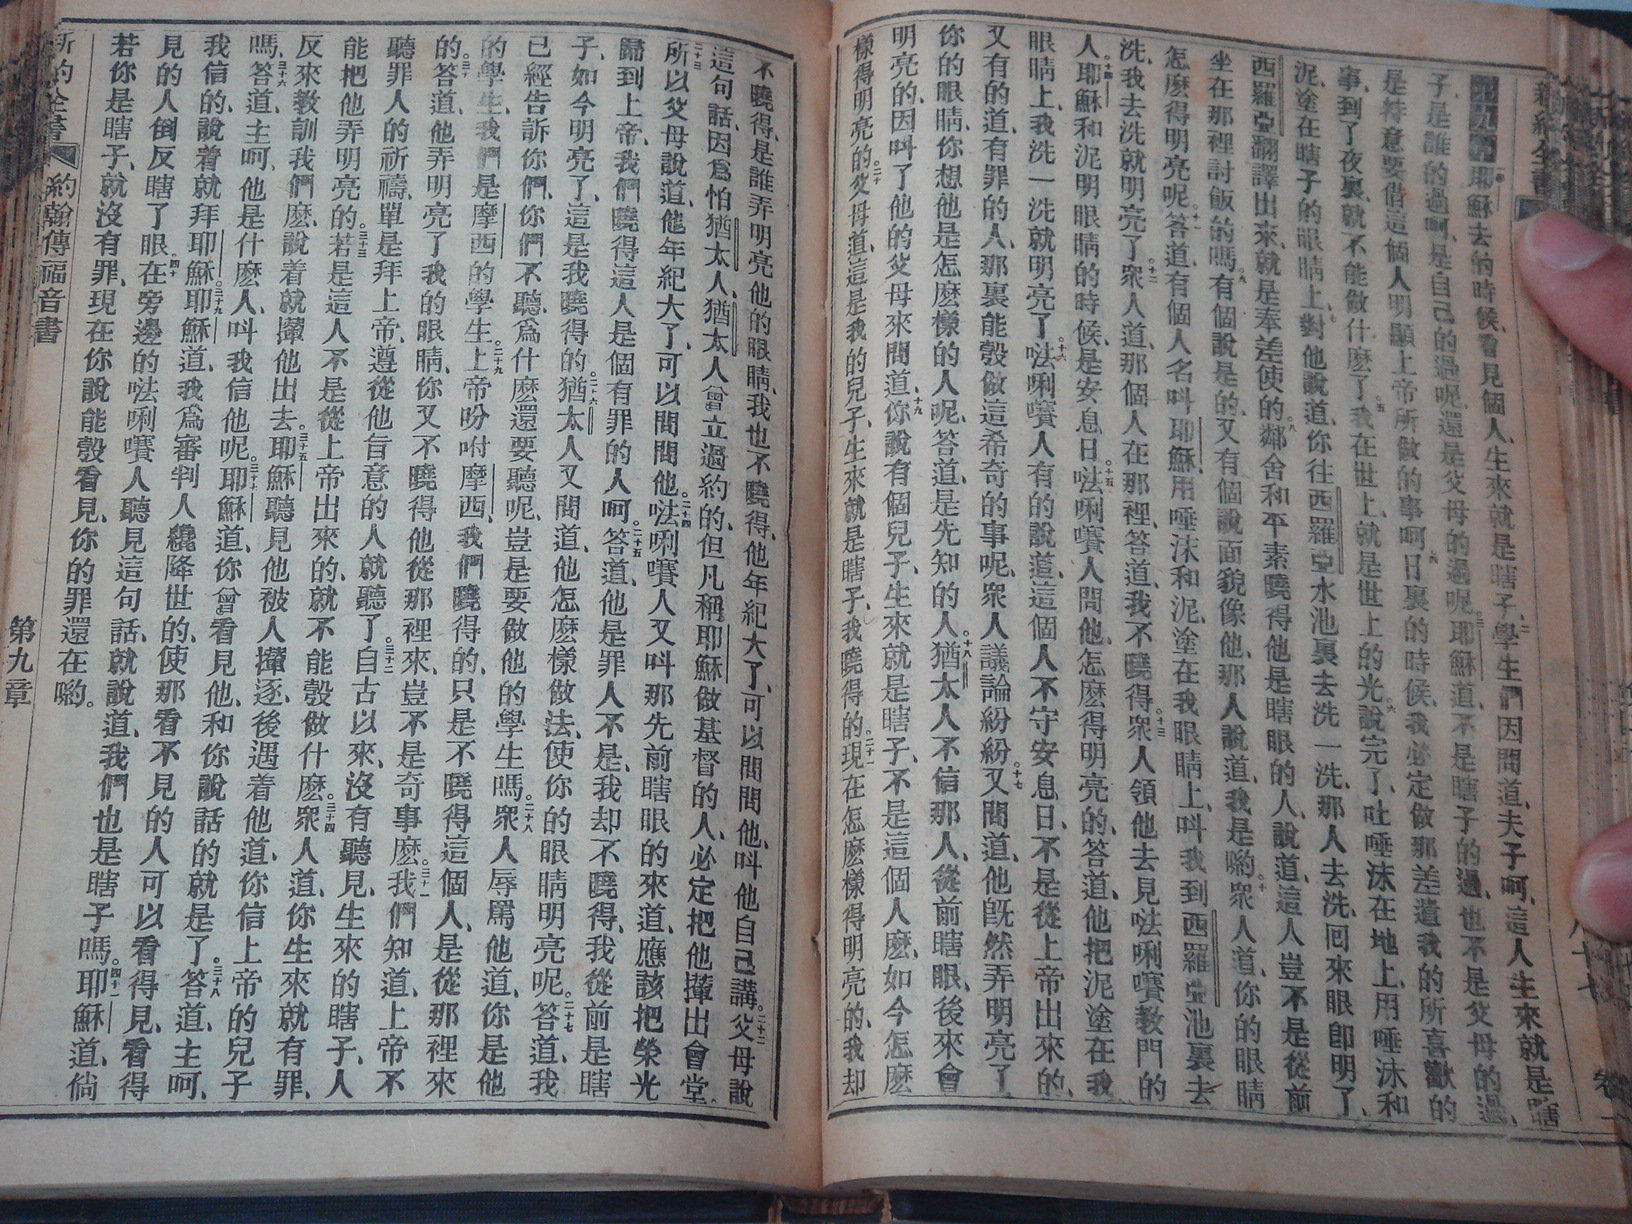 新約全書
第九章 耶穌去的時候、看見個人、生來就是瞎子、學生們因問道、夫子呵、這人生來就是瞎
子、是誰的過呵、是自己的過呢、還是父母的過呢。耶穌道、不是瞎子的過、也不是父母的過、
是特意要借這個人明顯上帝所做的事呵。日裏的時候、我必定做那差遣我的所喜歡的
事、到了夜裏、就不能做什麽了。我在世上、就是世上的光。說完了、吐唾沫在地上、用唾沫和
泥、塗在瞎子的眼睛上。對他說道、你往西羅亞水池裏去洗一洗、那人去洗、回來眼卽明了、
西羅亞翻譯出來、就是奉差使的。鄰舍和平素曉得他是瞎眼的人、說道、這人豈不是從前
坐在那裡討飯的嗎。有個說是的、又有個說面貌像他、那人說道、我是喲。衆人道、你的眼睛
怎麽得明亮呢。答道、有個人名叫耶穌、用唾沫和泥、塗在我眼睛上、叫我到西羅亞池裏去
洗、我去洗就明亮了。衆人道、那個人在那裡、答道、我不曉得。衆人領他去見㳒唎㘔教門的
人。耶穌和泥明眼睛的時候、是安息日。㳒唎㘔人問他、怎麽得明亮的、答道、他把泥塗在我
眼睛上、我洗一洗就明亮了。㳒唎㘔人有的說道、這個人不守安息日、不是從上帝出來的、
又有的道、有罪的人、那裏能彀做這希奇的事呢、衆人議論紛紛。又問道、他旣然弄明亮了
你的眼睛、你想他是怎麽樣的人呢、答道、是先知的人。猶太人不信那人、從前瞎眼、後來會
明亮的、因叫了他的父母來問道。你說有個兒子、生來就是瞎子、不是這個人麽、如今怎麽
樣得明亮的。父母道、這是我的兒子、生來就是瞎子、我曉得的。現在怎麽樣得明亮的、我却
不曉得、是誰弄明亮他的眼睛、我也不曉得、他年紀大了、可以問問他、叫他自己講。父母說
這句話、因爲怕猶太人、猶太人曾立過約的、但凡稱耶穌做基督的人、必定把他攆出會堂。
所以父母說道、他年紀大了、可以問問他。㳒唎㘔人又叫那先前瞎眼的來道、應該把榮光
歸到上帝、我們曉得這人是個有罪的人呵。答道、他是罪人不是、我却不曉得、我從前是瞎
子、如今明亮了、這是我曉得的。猶太人又問道、他怎麽樣做法、使你的眼睛明亮呢。答道、我
已經告訴你們、你們不聽、爲什麽還要聽呢、豈是要做他的學生嗎。衆人辱罵他道、你是他
的學生、我們是摩西的學生。上帝吩咐摩西、我們曉得的、只是不曉得這個人、是從那裡來
的。答道、他弄明亮了我的眼睛、你又不曉得他從那裡來、豈不是奇事麽。我們知道、上帝不
聽罪人的祈禱、單是拜上帝、遵從他旨意的人、就聽了。自古以來、沒有聽見、生來的瞎子、人
能把他弄明亮的。若是這人不是從上帝出來的、就不能彀做什麽。衆人道、你生來就有罪、
反來教訓我們麽、說着就攆他出去。耶穌聽見他被人攆逐、後遇着他道、你信上帝的兒子
嗎。答道、主呵、他是什麽人、叫我信他呢。耶穌道、你曾看見他、和你說話的就是了。答道、主呵、
我信的、說着就拜耶穌。耶穌道、我爲審判人纔降世的、使那看不見的人可以看得見、看得
見的人倒反瞎了眼。在旁邊的㳒唎㘔人聽見這句話、就說道、我們也是瞎子嗎。耶穌道、倘
若你是瞎子、就沒有罪、現在你說能彀看見、你的罪還在喲。
新約全書 約翰傳福音書 第九章